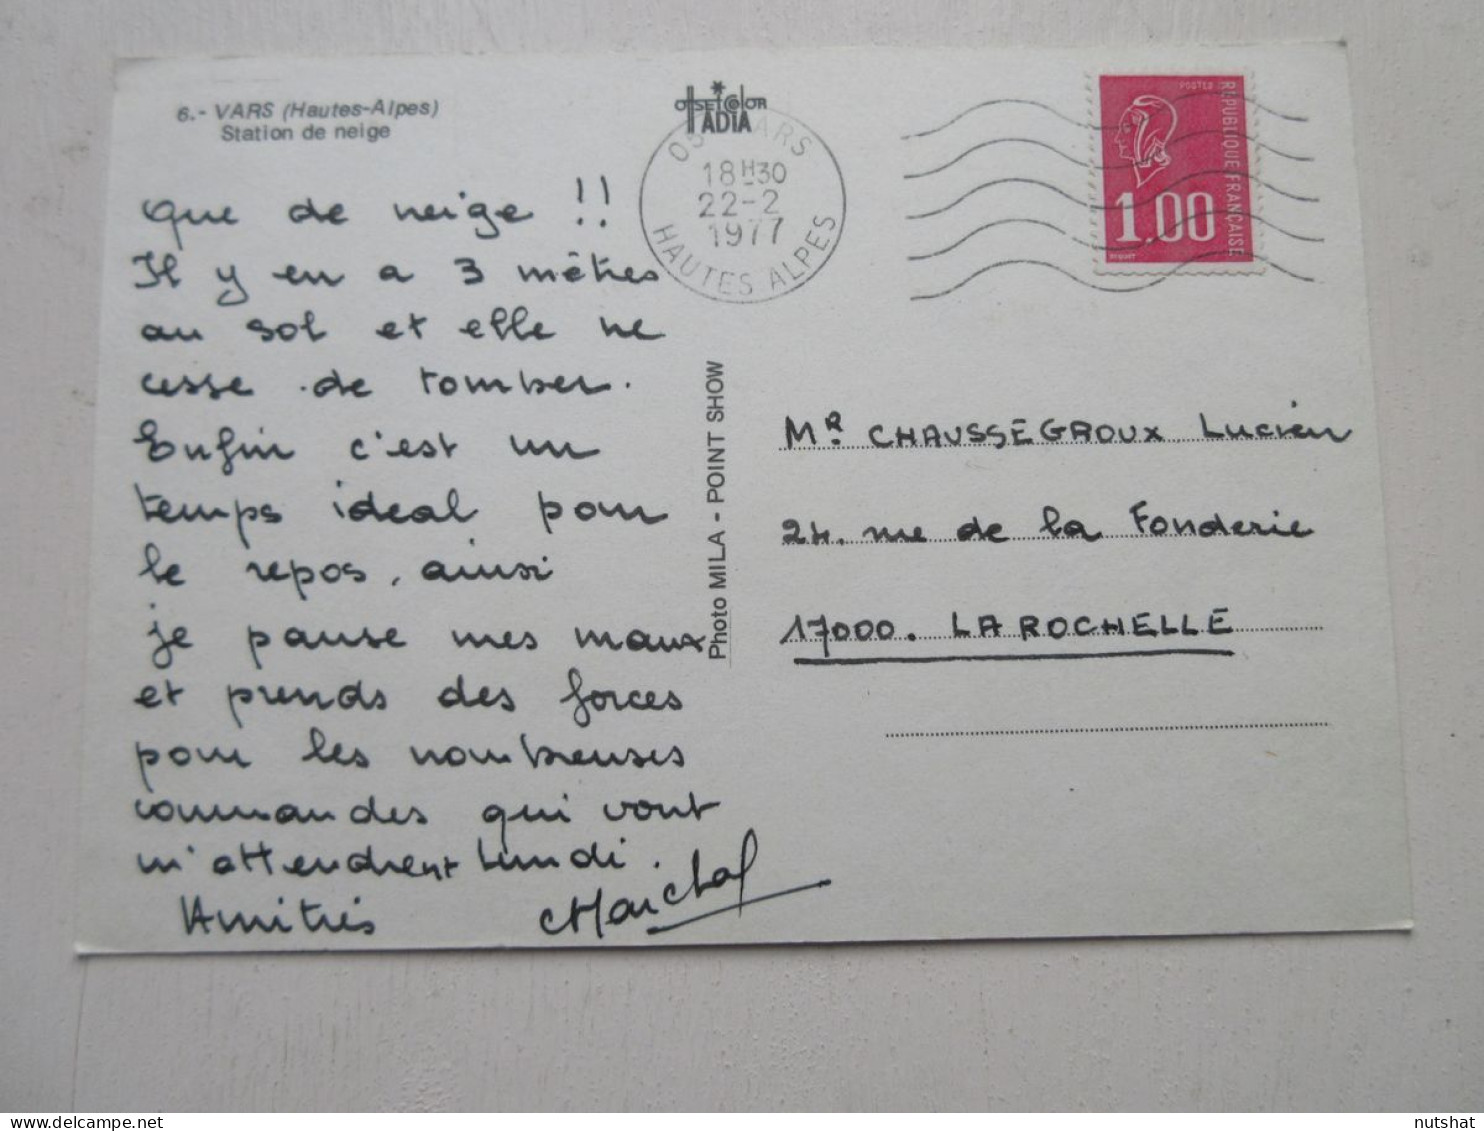 6.- VARS (Hautes-Alpes)
Station de neige
OFFSET COLOR
IADIA
05 VARS
18H30
22-2
1977
HAUTES ALPES
POSTES
REPUBLIQUE FRANÇAISE
1,00
BEQUET
Que de neige !!
Il y en a 3 mètres
au sol et elle ne
cesse de tomber.
Enfin c'est un
temps idéal pour
le repos, ainsi
je panse mes maux
et prends des forces
pour les nombreuses
commandes qui vont
m'attendrent Lundi.
Amitiés
Marchal
Photo MILA - POINT SHOW
MR CHAUSSEGROUX Lucien
24, rue de la Fonderie
17000. LA ROCHELLE
nutshat